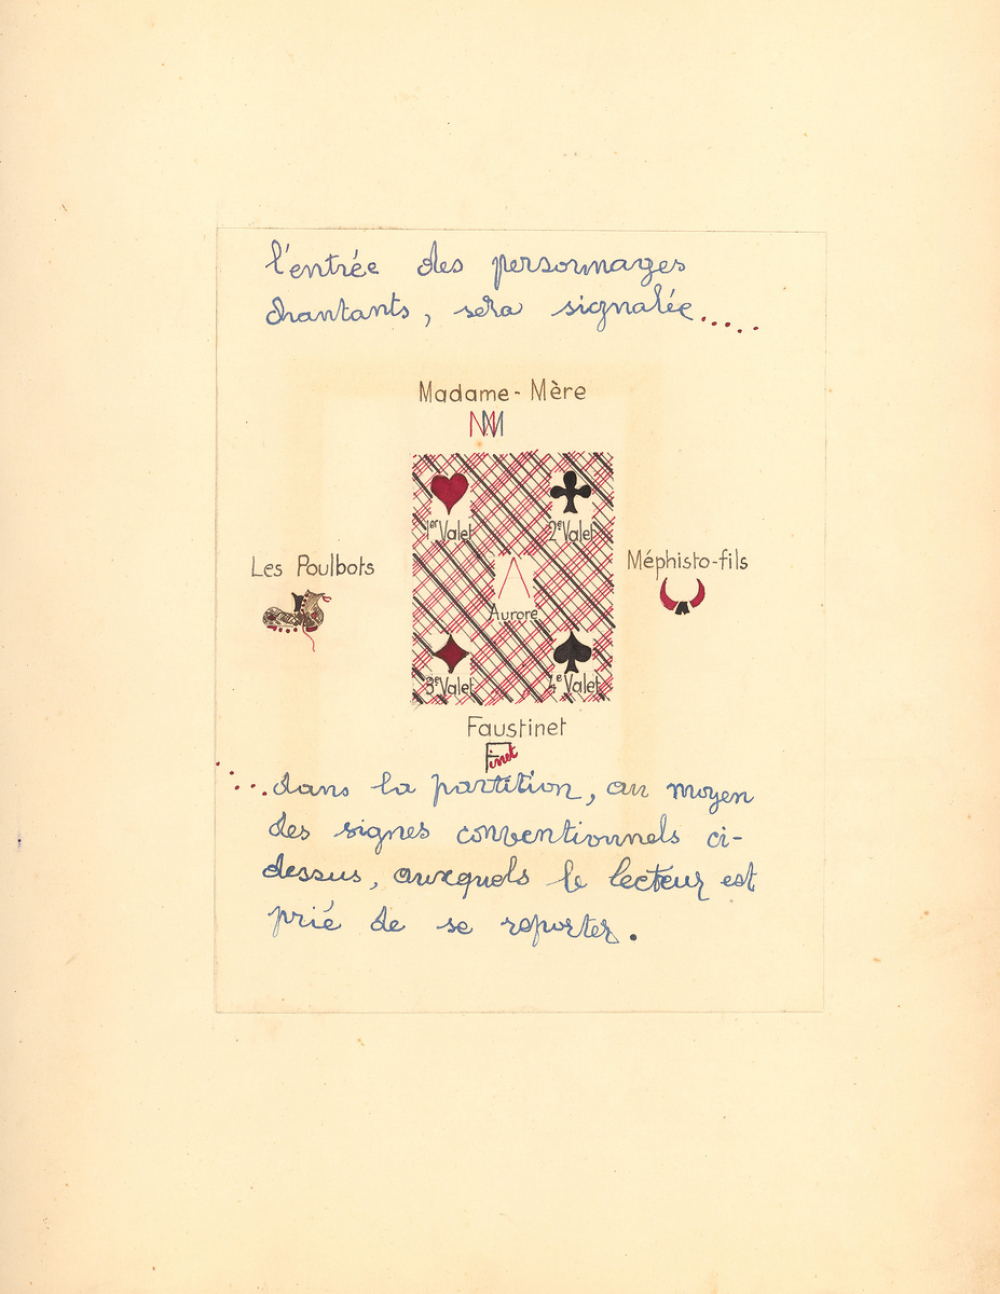 l'entrée des personnages
chantants, sera signalée.....
Madame-Mère
MM
1er Valet
2e Valet
Les Poulbots
Méphisto-fils
A
Aurore
3e Valet
4e Valet
Faustinet
Finet
.....dans la partition, au moyen
des signes conventionnels ci-
dessus, auxquels le lecteur est
prié de se reporter.